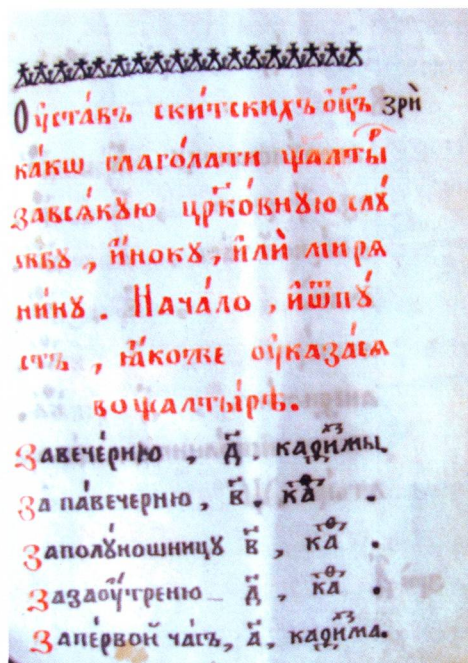 Оу҆ста́въ ски́тскихъ ѻ҆ц҃ъ зри̑
ка́кѡ глаго́лати ѱалты́р
завсѧ́кꙋю цр҃ко́внꙋю слꙋ́
жбꙋ, и҆́нокꙋ, и҆лѝ мирѧ
ни́нꙋ. Нача́ло, и҆ ѿпꙋ́
стъ, ꙗ҆́коже оу҆каза́сѧ
воѱалты́рѣ.
Завече́рнюю, д҃. каѳи́змы.
За па́вечерню, в҃. каѳ.
Заполꙋ́ношницꙋ в҃, каѳ.
Зазаоу́треню д҃, каѳ.
Запе́рвой ча́съ, а҃, каѳи́зма.